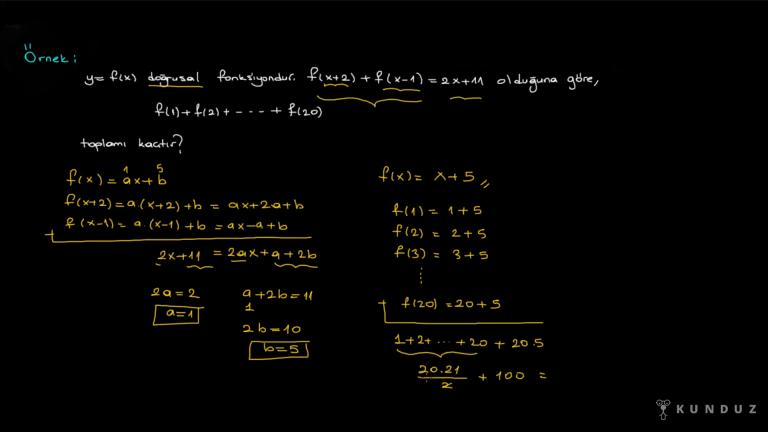 Örnek:
y=f(x) doğrusal fonksiyondur. f(x+2)+f(x-1)=2x+11 olduğuna göre,
f(1)+f(2)+----+f(20)
toplamı kaçtır?
1 5
f(x)=ax+b
f(x+2)=a.(x+2)+b=ax+2a+b
f(x-1)=a.(x-1)+b=ax-a+b
+
2x+11=2ax+a+2b
2a=2
a=1
a+2b=11
1
2b=10
b=5
f(x)=x+5//
f(1)=1+5
f(2)=2+5
f(3)=3+5
⋮
+ f(20)=20+5
1+2+...+20+20.5
20.21/2 + 100 =
KUNDUZ